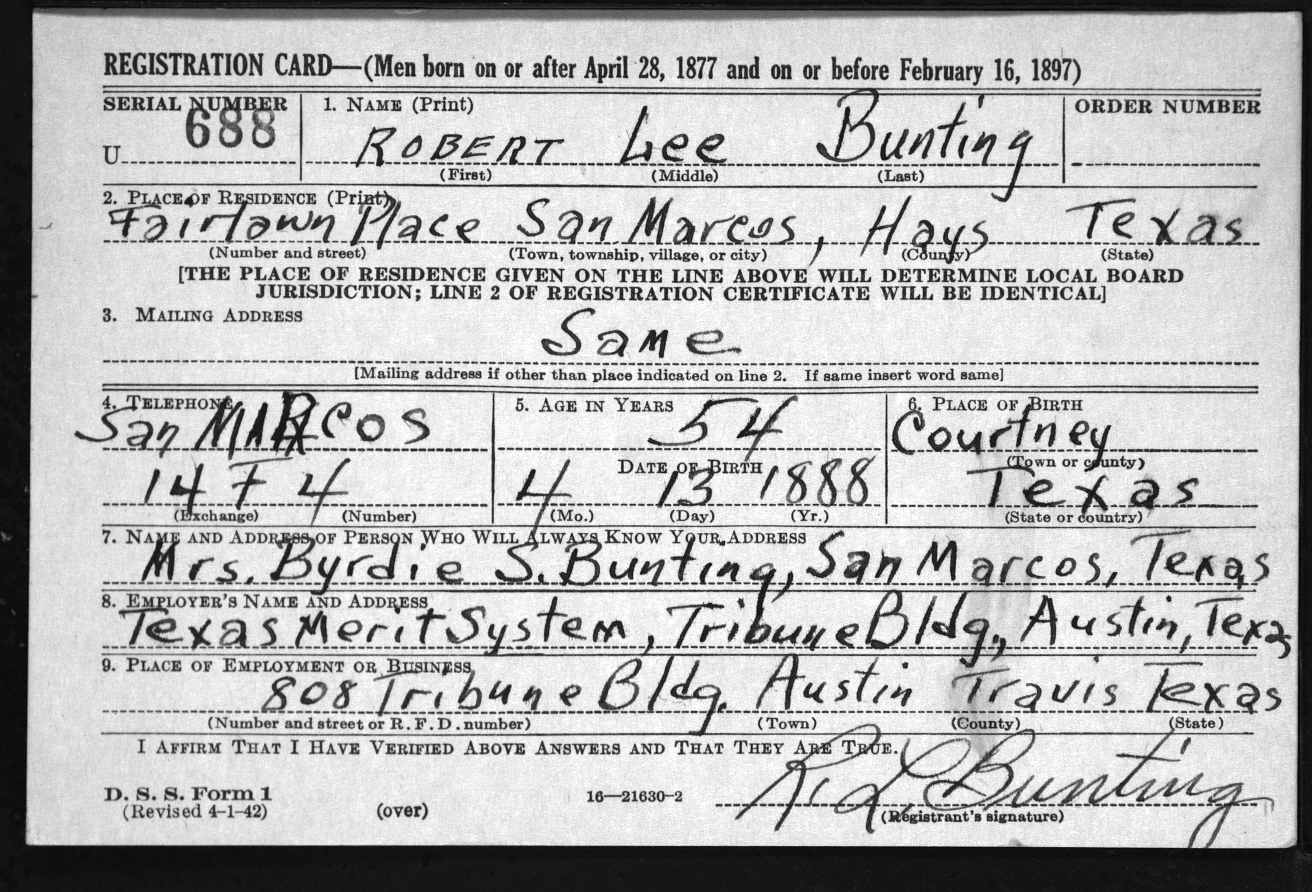 REGISTRATION CARD—(Men born on or after April 28, 1877 and on or before February 16, 1897)
SERIAL NUMBER 1. NAME (Print) ORDER NUMBER
U 688 ROBERT Lee Bunting
(First) (Middle) (Last)
2. PLACE OF RESIDENCE (Print)
Fairlawn Place San Marcos, Hays Texas
(Number and street) (Town, township, village, or city) (County) (State)
[THE PLACE OF RESIDENCE GIVEN ON THE LINE ABOVE WILL DETERMINE LOCAL BOARD
JURISDICTION; LINE 2 OF REGISTRATION CERTIFICATE WILL BE IDENTICAL]
3. MAILING ADDRESS
Same
[Mailing address if other than place indicated on line 2. If same insert word same]
4. TELEPHONE 5. AGE IN YEARS 6. PLACE OF BIRTH
San MARcos 54 Courtney
DATE OF BIRTH (Town or county)
14 F 4 4 13 1888 Texas
(Exchange) (Number) (Mo.) (Day) (Yr.) (State or country)
7. NAME AND ADDRESS OF PERSON WHO WILL ALWAYS KNOW YOUR ADDRESS
Mrs. Byrdie S. Bunting, San Marcos, Texas
8. EMPLOYER'S NAME AND ADDRESS
Texas Merit System, Tribune Bldg., Austin, Texas
9. PLACE OF EMPLOYMENT OR BUSINESS
808 Tribune Bldg. Austin Travis Texas
(Number and street or R. F. D. number) (Town) (County) (State)
I AFFIRM THAT I HAVE VERIFIED ABOVE ANSWERS AND THAT THEY ARE TRUE.
R. L. Bunting
D. S. S. Form 1 16—21630-2
(Revised 4-1-42) (over) (Registrant's signature)